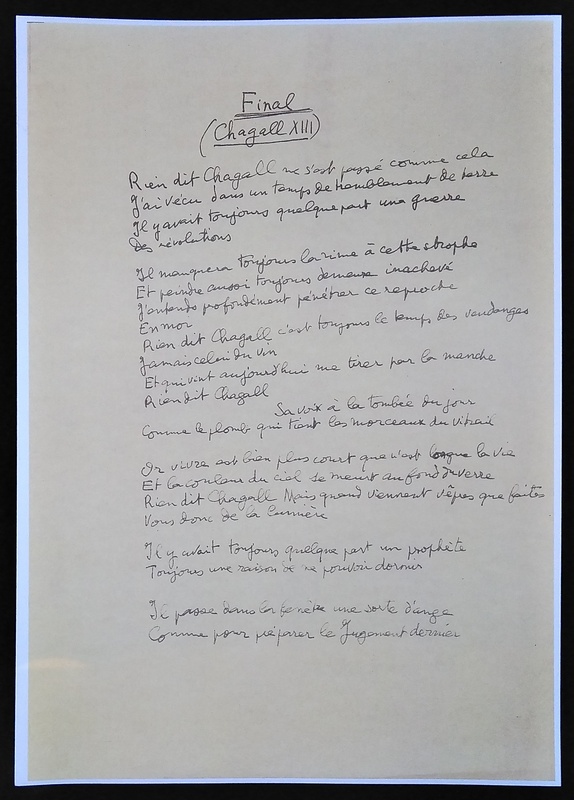 Final
(Chagall XIII)
Rien dit Chagall ne s'est passé comme cela
J'ai vécu dans un temps de tremblement de terre
Il y avait toujours quelque part une guerre
Des révolutions
Il manquera toujours la rime à cette strophe
Et peindre aussi toujours demeure inachevé
J'entends profondément pénétrer ce reproche
En moi
Rien dit Chagall c'est toujours le temps des vendanges
Jamais celui du vin
Et qui vint aujourd'hui me tirer par la manche
Rien dit Chagall
Sa voix à la tombée du jour
Comme le plomb qui tient les morceaux du vitrail
Or vivre est bien plus court que n'est longue la vie
Et la couleur du ciel se meurt au fond du verre
Rien dit Chagall Mais quand viennent vêpres que faites
Vous donc de la lumière
Il y avait toujours quelque part un prophète
Toujours une raison de ne pouvoir dormir
Il passe dans la fenêtre une sorte d'ange
Comme pour préparer le Jugement dernier